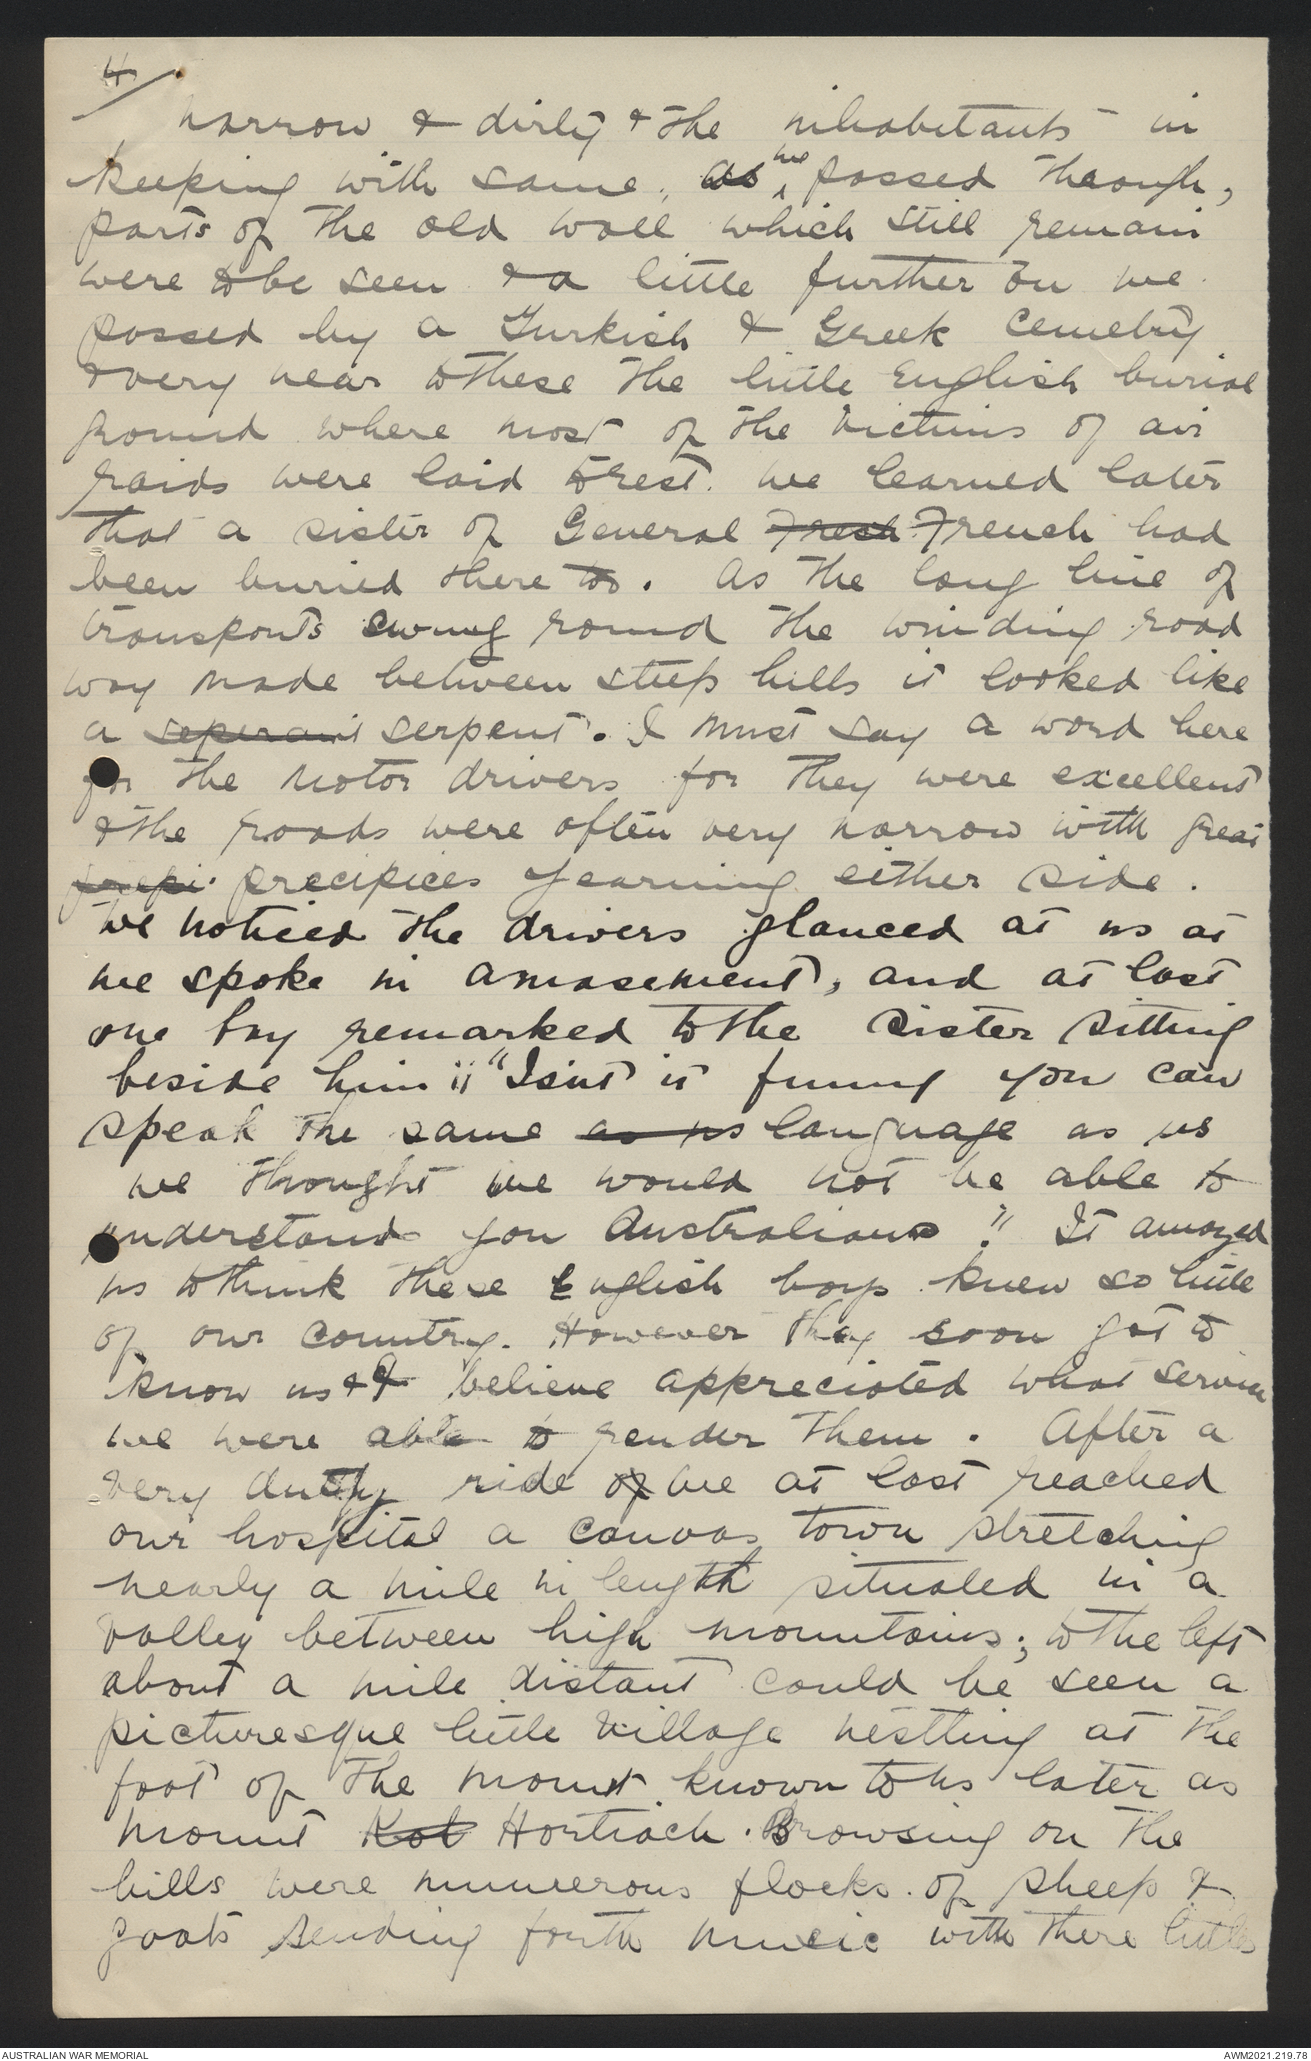 4/
narrow & dirty & the inhabitants in
keeping with same, as we passed through,
parts of the old wall which still remain
were to be seen & a little further on we
passed by a Turkish & Greek Cemetry
& very near to these the little English burial
ground where most of the victims of air
raids were laid to rest. We learned later
that a sister of General Fresh French had
been buried there too. As the long line of
transports swung round the winding road
way made between steep hills it looked like
a seperant serpent. I must say a word here
for the motor drivers for they were excellent
& the roads were often very narrow with great
prepi precipices yearning either side.
We noticed the drivers glanced at us as
we spoke in amasement, and at last
one boy remarked to the sister sitting
beside him "Isnt it funny you can
speak the same as us language as us
we thought we would not be able to
understand you Australians." It amazed
us to think these English boys knew so little
of our country. However they soon got to
know us & I believe appreciated what service
we were able to render them. After a
very dusty ride of we at last reached
our hospital a canvas town stretching
nearly a mile in length situated in a
valley between high mountains; to the left
about a mile distant could be seen a
picturesque little village nestling at the
foot of the mount known to us later as
Mount Kot Hortiach. Browsing on the
hills were numerous flocks of sheep &
goats sending forth music with there little
AUSTRALIAN WAR MEMORIAL
AWM2021.219.78